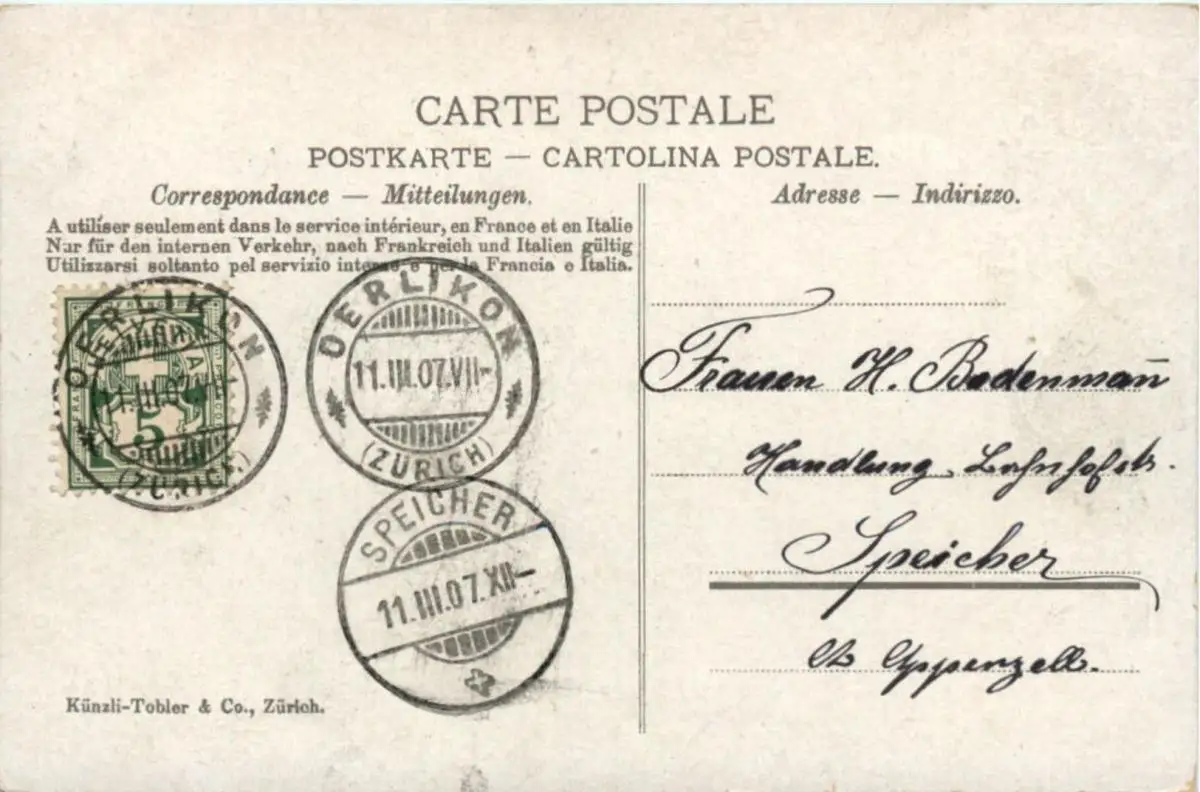 CARTE POSTALE
POSTKARTE — CARTOLINA POSTALE.
Correspondance — Mitteilungen.
A utiliser seulement dans le service intérieur, en France et en Italie
Nur für den internen Verkehr, nach Frankreich und Italien gültig
Utilizzarsi soltanto pel servizio interno e per la Francia e Italia.
OERLIKON
(ZÜRICH)
5
OERLIKON
11.III.07.VII-
(ZÜRICH)
SPEICHER
11.III.07.XII-
Künzli-Tobler & Co., Zürich.
Adresse — Indirizzo.
Frauen H. Bodenman̄
Handlung Bahnhofstr.
Speicher
Appenzell.